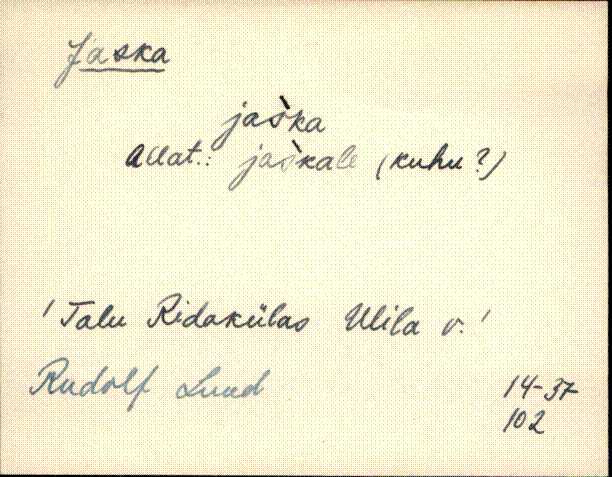 Jaska
jaska
Allat.: jaskale (kuhu?)
'Talu Ridakülas Ulila v.'
Rudolf Luud
14-37
102